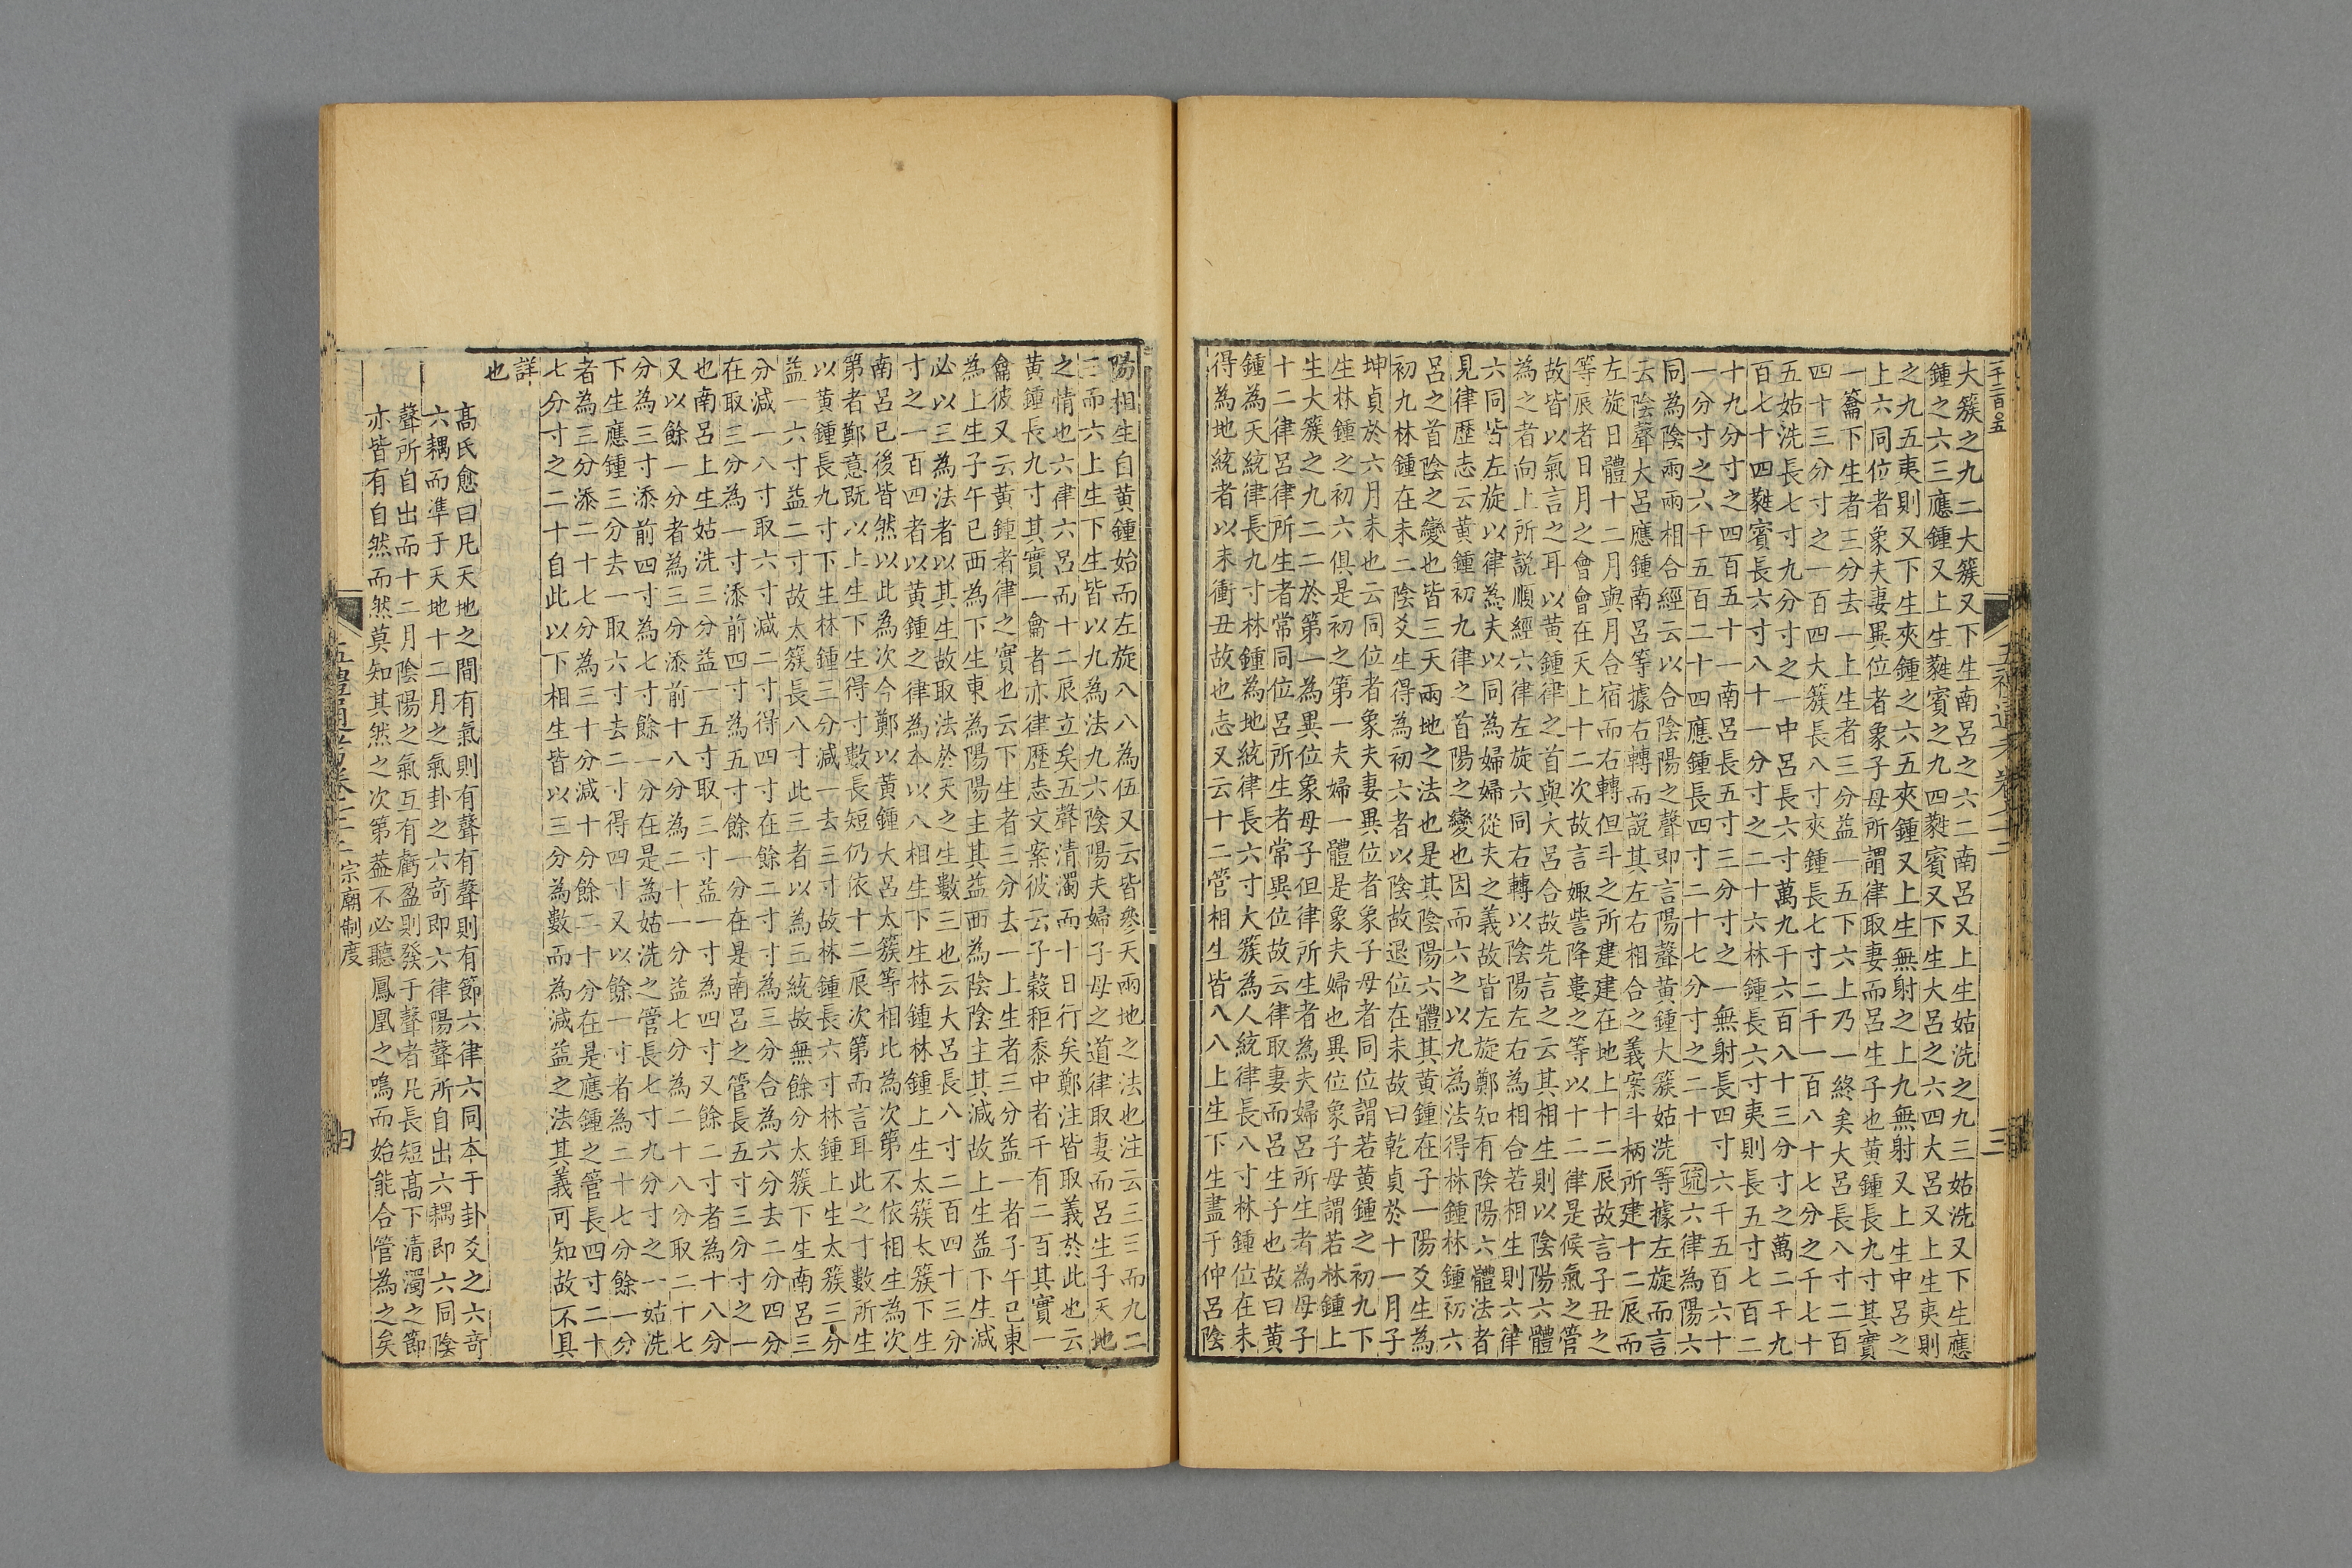 二千三百五
大簇之九二大簇又下生南呂之六二南呂又上生姑洗之九三姑洗又下生應
鍾之六三應鍾又上生蕤賓之九四蕤賓又下生大呂之六四大呂又上生夷則
之九五夷則又下生夾鍾之六五夾鍾又上生無射之上九無射又上生中呂之
上六同位者象夫妻異位者象子母所謂律取妻而呂生子也黃鍾長九寸其實
一籥下生者三分去一上生者三分益一五下六上乃一終矣大呂長八寸二百
四十三分寸之一百四大簇長八寸夾鍾長七寸二千一百八十七分之千七十
五姑洗長七寸九分寸之一中呂長六寸萬九千六百八十三分寸之萬二千九
百七十四蕤賓長六寸八十一分寸之二十六林鍾長六寸夷則長五寸七百二
十九分寸之四百五十一南呂長五寸三分寸之一無射長四寸六千五百六十
一分寸之六千五百二十四應鍾長四寸二十七分寸之二十 疏六律為陽六
同為陰兩兩相合經云以合陰陽之聲即言陽聲黃鍾大簇姑洗等據左旋而言
云陰聲大呂應鍾南呂等據右轉而說其左右相合之義案斗柄所建十二辰而
左旋日體十二月與月合宿而右轉但斗之所建建在地上十二辰故言子丑之
等辰者日月之會會在天上十二次故言娵訾降婁之等以十二律是候氣之管
故皆以氣言之耳以黃鍾律之首與大呂合故先言之云其相生則以陰陽六體
為之者向上所說順經六律左旋六同右轉以陰陽左右為相合若相生則六律
六同皆左旋以律為夫以同為婦婦從夫之義故皆左旋鄭知有陰陽六體法者
見律歷志云黃鍾初九律之首陽之變也因而六之以九為法得林鍾林鍾初六
呂之首陰之變也皆三天兩地之法也是其陰陽六體其黃鍾在子一陽爻生為
初九林鍾在未二陰爻生得為初六者以陰故退位在未故曰乾貞於十一月子
坤貞於六月未也云同位者象夫妻異位者象子母者同位謂若黃鍾之初九下
生林鍾之初六俱是初之第一夫婦一體是象夫婦也異位象子母謂若林鍾上
生大簇之九二二於第一為異位象母子但律所生者為夫婦呂所生者為母子
十二律呂律所生者常同位呂所生者常異位故云律取妻而呂生子也故曰黃
鍾為天統律長九寸林鍾為地統律長六寸大簇為人統律長八寸林鍾位在未
得為地統者以未衝丑故也志又云十二管相生皆八八上生下生盡于仲呂陰
五禮通考卷七十二
三
陽相生自黃鍾始而左旋八八為伍又云皆參天兩地之法也注云三三而九二
三而六上生下生皆以九為法九六陰陽夫婦子母之道律取妻而呂生子天地
之情也六律六呂而十二辰立矣五聲清濁而十日行矣鄭注皆取義於此也云
黃鍾長九寸其實一龠者亦律歷志文案彼云子穀秬黍中者千有二百其實一
龠彼又云黃鍾者律之實也云下生者三分去一上生者三分益一者子午已東
為上生子午已西為下生東為陽陽主其益西為陰陰主其減故上生益下生減
必以三為法者以其生故取法於天之生數三也云大呂長八寸二百四十三分
寸之一百四者以黃鍾之律為本以八相生下生林鍾林鍾上生太簇太簇下生
南呂已後皆然以此為次今鄭以黃鍾大呂太簇等相比為次第不依相生為次
第者鄭意既以上生下生得寸數長短仍依十二辰次第而言耳此之寸數所生
以黃鍾長九寸下生林鍾三分減一去三寸故林鍾長六寸林鍾上生太簇三分
益一六寸益二寸故太簇長八寸此三者以為三統故無餘分太簇下生南呂三
分減一八寸取六寸減二寸得四寸在餘二寸寸為三分合為六分去二分四分
在取三分為一寸添前四寸為五寸餘一分在是南呂之管長五寸三分寸之一
也南呂上生姑洗三分益一五寸取三寸益一寸為四寸又餘二寸者為十八分
又以餘一分者為三分添前十八分為二十一分益七分為二十八分取二十七
分為三寸添前四寸為七寸餘一分在是為姑洗之管長七寸九分寸之一姑洗
下生應鍾三分去一取六寸去二寸得四寸又以餘一寸者為二十七分餘一分
者為三分添二十七分為三十分減十分餘二十分在是應鍾之管長四寸二十
七分寸之二十自此以下相生皆以三分為數而為減益之法其義可知故不具
詳
也
高氏愈曰凡天地之間有氣則有聲有聲則有節六律六同本于卦爻之六奇
六耦而準于天地十二月之氣卦之六奇即六律陽聲所自出六耦即六同陰
聲所自出而十二月陰陽之氣互有虧盈則發于聲者凡長短高下清濁之節
亦皆有自然而然莫知其然之次第蓋不必聽鳳凰之鳴而始能合管為之矣
五禮通考卷七十二 宗廟制度
四